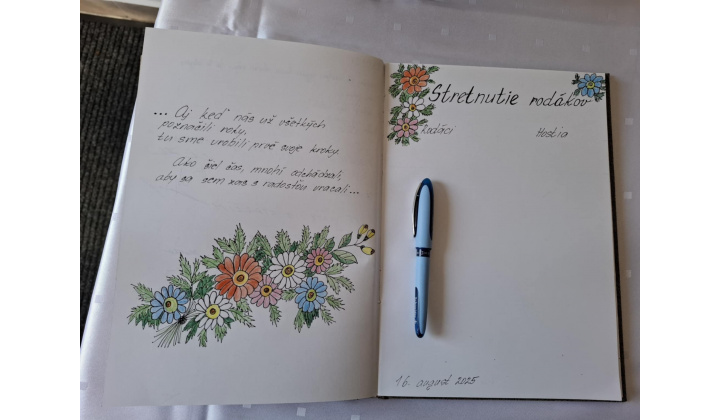 ... Aj keď nás už všetkých
poznačili roky,
tu sme urobili prvé svoje kroky.
Ako šiel čas, mnohí odchádzali,
aby sa sem zas s radosťou vracali...
Stretnutie rodákov
Rodáci
Hostia
16. august 2025